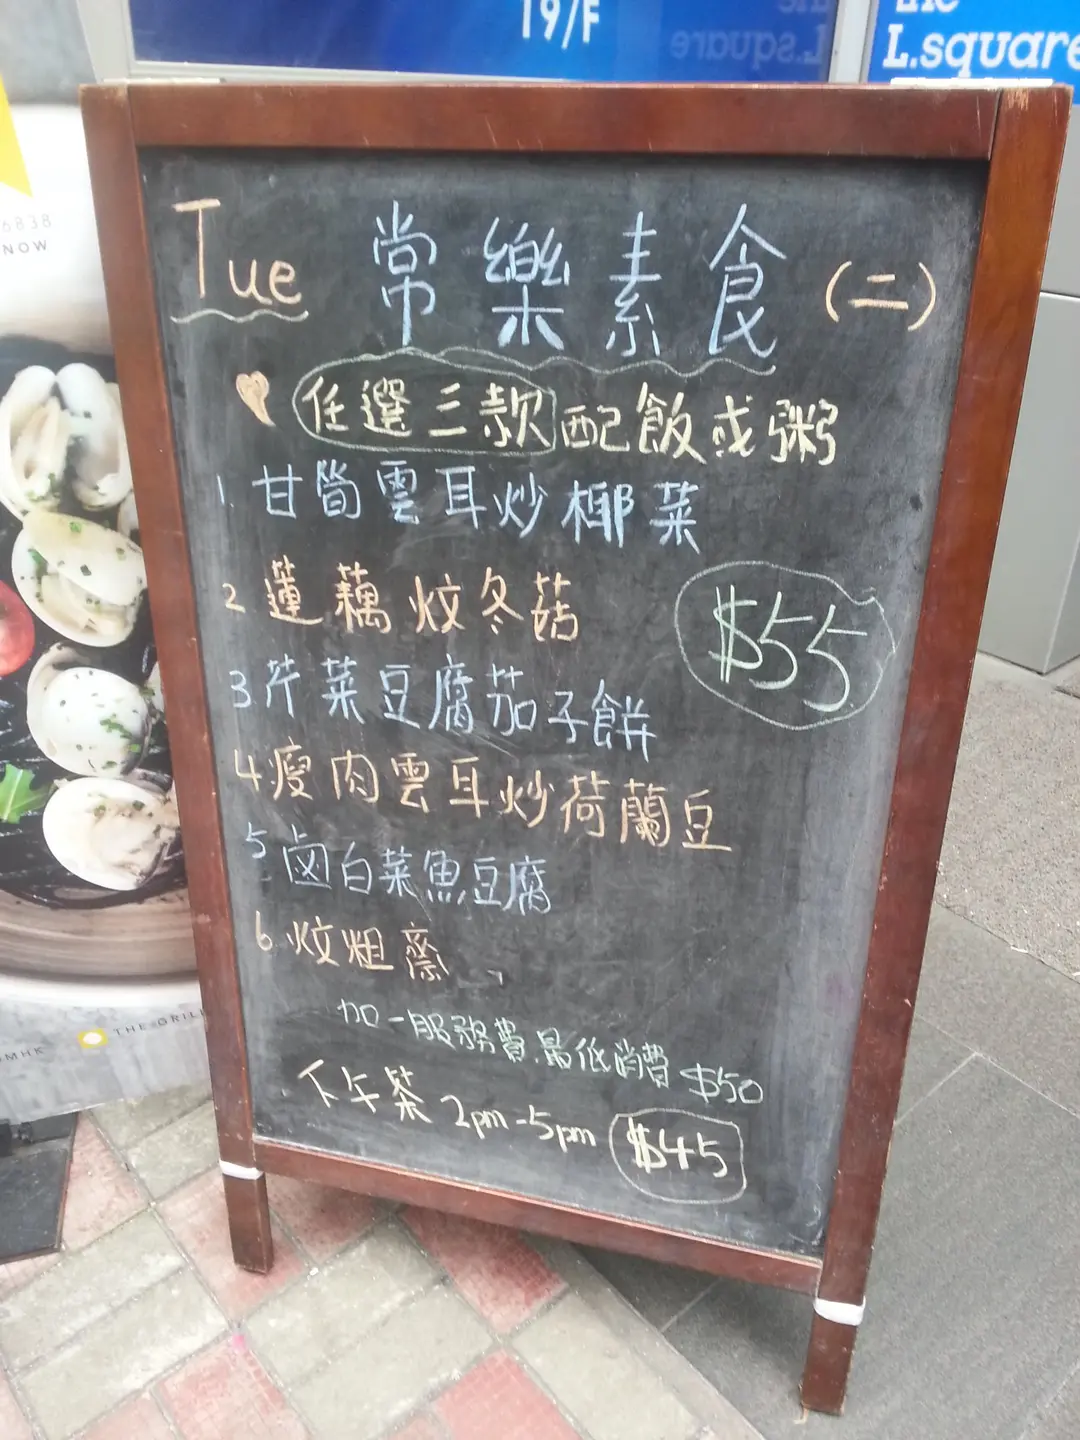 19/F
the
L.square
the
L.square
6838
NOW
Tue 常樂素食 (二)
任選三款配飯或粥
1. 甘筍雲耳炒椰菜
2 蓮藕炆冬菇
$55
3 芹菜豆腐茄子餅
4 瘦肉雲耳炒荷蘭豆
5 滷白菜魚豆腐
6 炆粗齋
加一服務費.最低消費 $50
下午茶 2pm-5pm $45
THE GRILL
OMHK